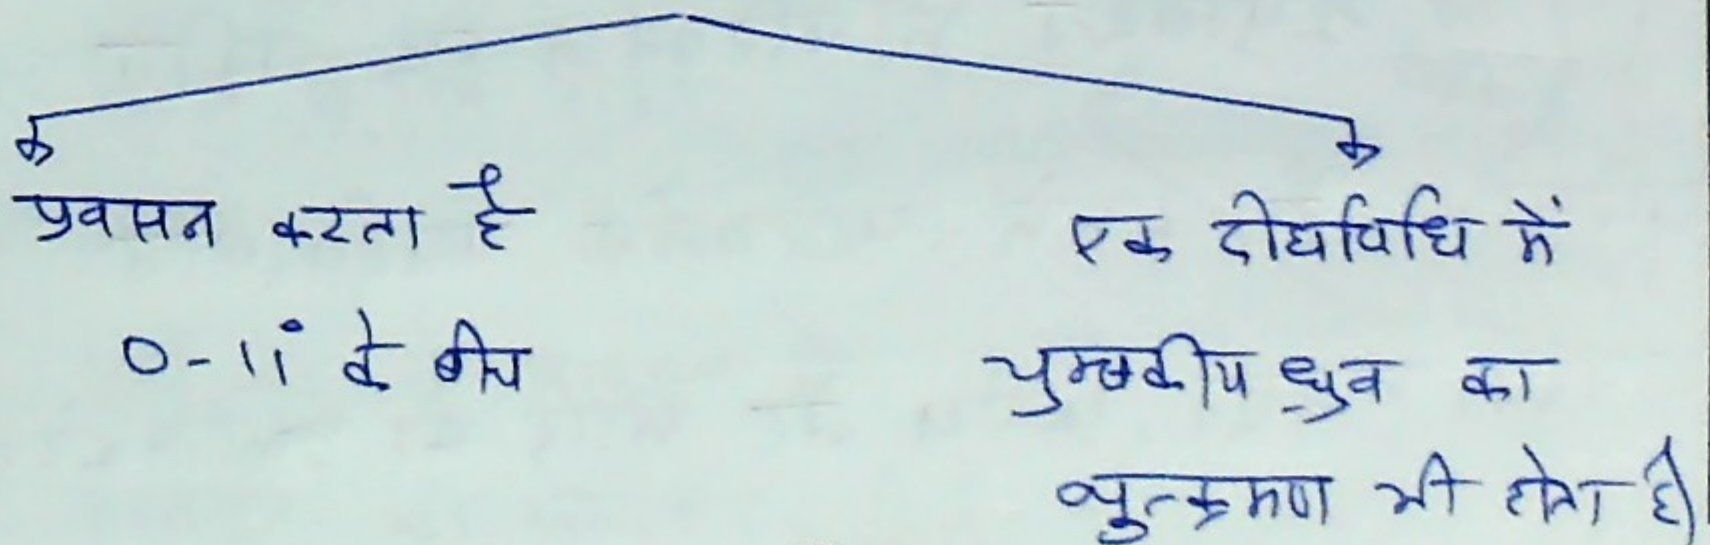 प्रवसन करता है
0-11° के बीच
एक दीर्घावधि में
चुम्बकीय ध्रुव का
व्युत्क्रमण भी होता है)